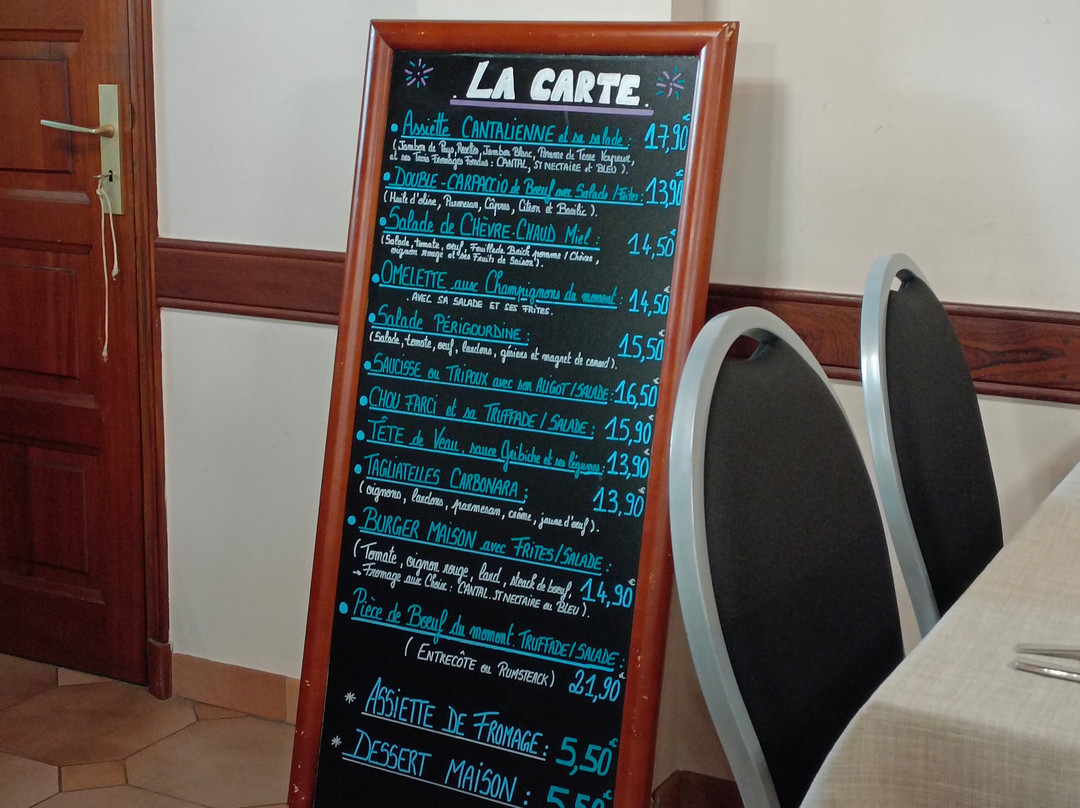 LA CARTE
• Assiette CANTALIENNE et sa salade : 17,90€
(Jambon de Pays, Rosette, Jambon Blanc, Pomme de Terre Vapeur,
et ses Trois Fromages Fondus : CANTAL, ST NECTAIRE et BLEU ).
• DOUBLE-CARPACCIO de Boeuf avec Salade / Frites : 13,90€
(Huile d'olive, Parmesan, Câpres, Citron et Basilic ).
• Salade de CHÈVRE-CHAUD Miel : 14,50€
(Salade, tomate, oeuf, Feuille de Brick pomme / Chèvre,
oignon rouge et ses Fruits de Saison ).
• OMELETTE aux Champignons du moment : 14,50€
. AVEC SA SALADE ET SES FRITES.
• Salade PÉRIGOURDINE : 15,50€
(Salade, tomate, oeuf, lardons, gésiers et magret de canard ).
• SAUCISSE ou TRIPOUX avec son ALIGOT / SALADE : 16,50€
• CHOU FARCI et sa TRUFFADE / SALADE : 15,90€
• TÊTE de Veau, sauce Gribiche et ses légumes : 13,90€
• TAGLIATELLES CARBONARA : 13,90€
( oignons, lardons, parmesan, crème, jaune d'oeuf ).
• BURGER MAISON avec FRITES/SALADE :
( Tomate, oignon rouge, lard, steack de boeuf, 14,90€
→ Fromage aux Choix : CANTAL. ST NECTAIRE ou BLEU ).
• Pièce de Boeuf du moment. TRUFFADE/SALADE :
( ENTRECÔTE ou RUMSTEACK ) 21,90€
* ASSIETTE DE FROMAGE : 5,50€
* DESSERT MAISON : 5,50€